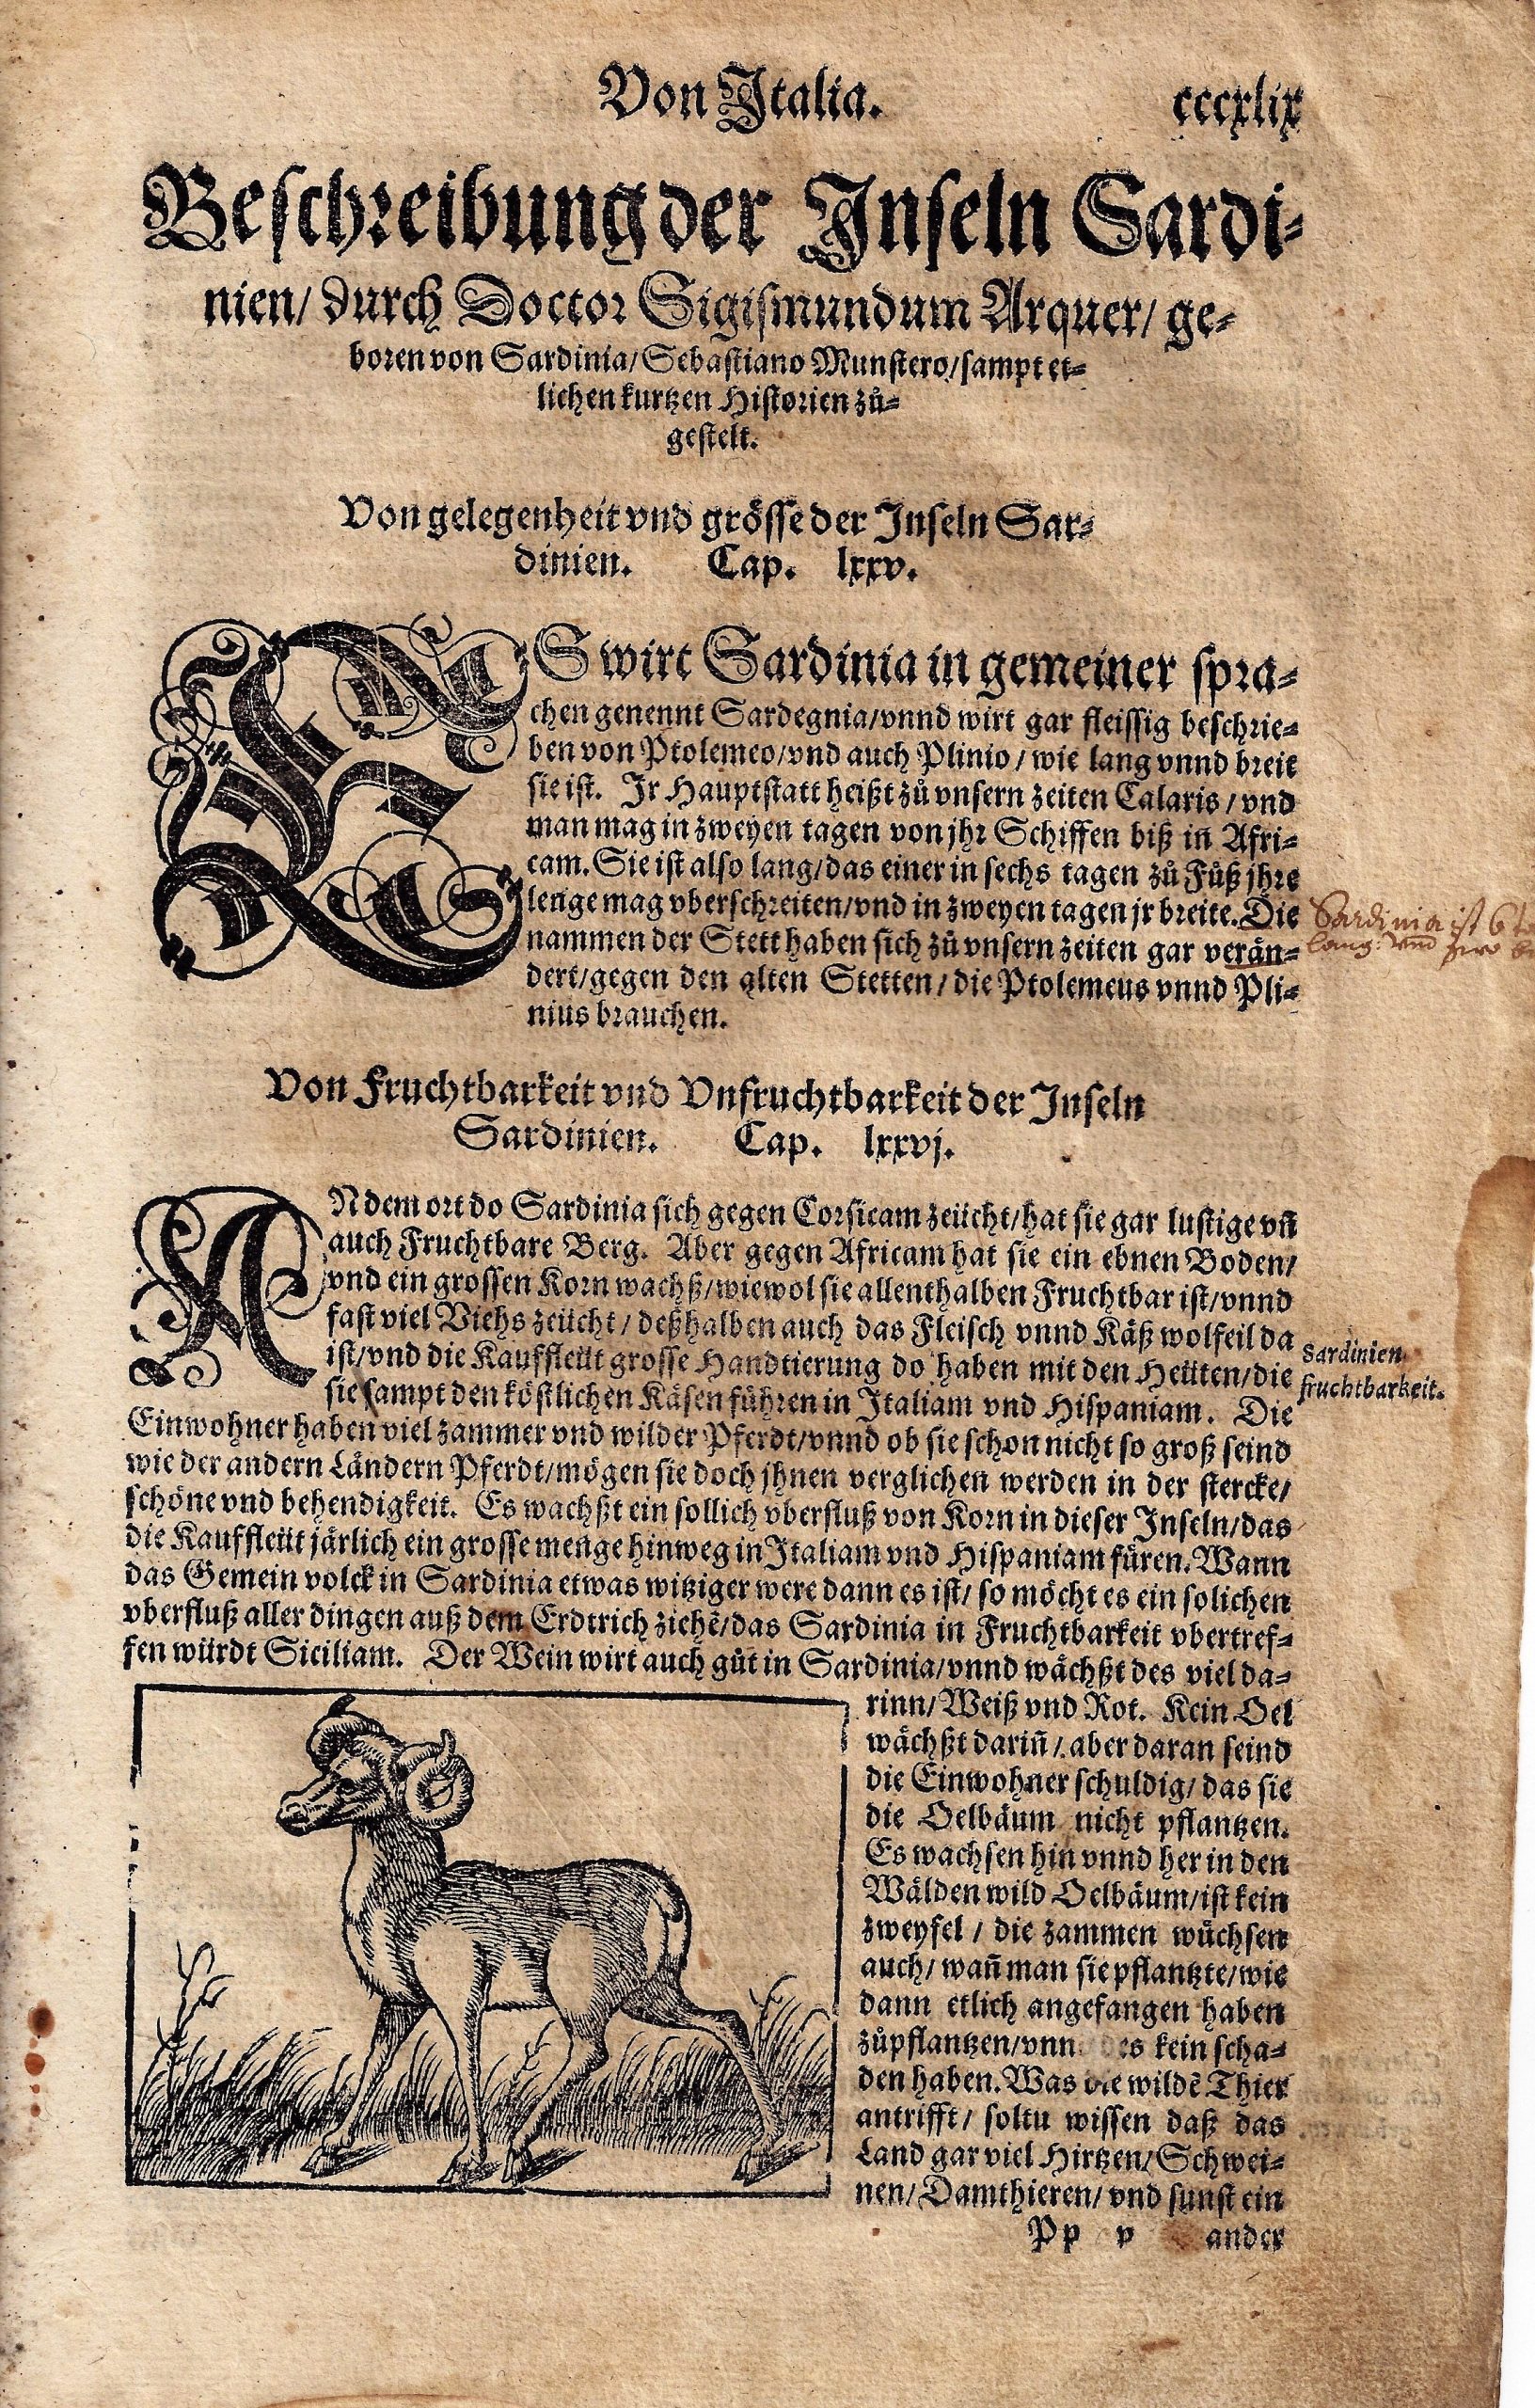 Von Italia. cccxlix
Beschreibung der Inseln Sardi-
nien/ durch Doctor Sigismundum Arquer/ ge-
boren von Sardinia/ Sebastiano Munstero/ sampt et-
lichen kurtzen Historien zů-
gestelt.
Von gelegenheit vnd grösse der Inseln Sar-
dinien. Cap. lxxv.
ES wirt Sardinia in gemeiner spra-
chen genennt Sardegnia/ vnnd wirt gar fleissig beschrie-
ben von Ptolemeo/ vnd auch Plinio / wie lang vnnd breit
sie ist. Ir Hauptstatt heißt zů vnsern zeiten Calaris / vnd
man mag in zweyen tagen von jhr Schiffen biß in Afri-
cam. Sie ist also lang/ das einer in sechs tagen zů Fůß jhre
lenge mag vberschreiten/ vnd in zweyen tagen jr breite. Die
nammen der Stett haben sich zů vnsern zeiten gar verän-
dert/ gegen den alten Stetten / die Ptolemeus vnnd Pli-
nius brauchen.
Sardinia ist 6
lang. vnd zwo
Von Fruchtbarkeit vnd Vnfruchtbarkeit der Inseln
Sardinien. Cap. lxxvj.
AN dem ort do Sardinia sich gegen Corsicam zeücht/ hat sie gar lustige vñ
auch Fruchtbare Berg. Aber gegen Africam hat sie ein ebnen Boden/
vnd ein grossen Korn wachß/ wiewol sie allenthalben Fruchtbar ist/ vnnd
fast viel Viehs zeücht / deßhalben auch das Fleisch vnnd Käß wolfeil da
ist/ vnd die Kauffleüt grosse Handtierung do haben mit den Heüten/ die
sie sampt den köstlichen Käsen führen in Italiam vnd Hispaniam. Die
Sardinien
fruchtbarkeit.
Einwohner haben viel zammer vnd wilder Pferdt/ vnnd ob sie schon nicht so groß seind
wie der andern Ländern Pferdt/ mögen sie doch jhnen verglichen werden in der stercke/
schöne vnd behendigkeit. Es wachßt ein sollich vberfluß von Korn in dieser Inseln/ das
die Kauffleüt järlich ein grosse menge hinweg in Italiam vnd Hispaniam füren. Wann
das Gemein volck in Sardinia etwas witziger were dann es ist/ so möcht es ein solichen
vberfluß aller dingen auß dem Erdtrich ziehē/ das Sardinia in Fruchtbarkeit vbertref-
fen würdt Siciliam. Der Wein wirt auch gůt in Sardinia/ vnnd wächßt des viel da-
rinn/ Weiß vnd Rot. Kein Oel
wächßt dariñ / aber daran seind
die Einwohner schuldig/ das sie
die Oelbäum nicht pflantzen.
Es wachsen hin vnnd her in den
Wälden wild Oelbäum/ ist kein
zweyfel / die zammen wüchsen
auch/ wañ man sie pflantzte/ wie
dann etlich angefangen haben
zůpflantzen/ vnn des kein scha-
den haben. Was die wildē Thier
antrifft/ soltu wissen daß das
Land gar viel Hirtzen/ Schwei-
nen/ Damthieren/ vnd sunst ein
Pp v ander